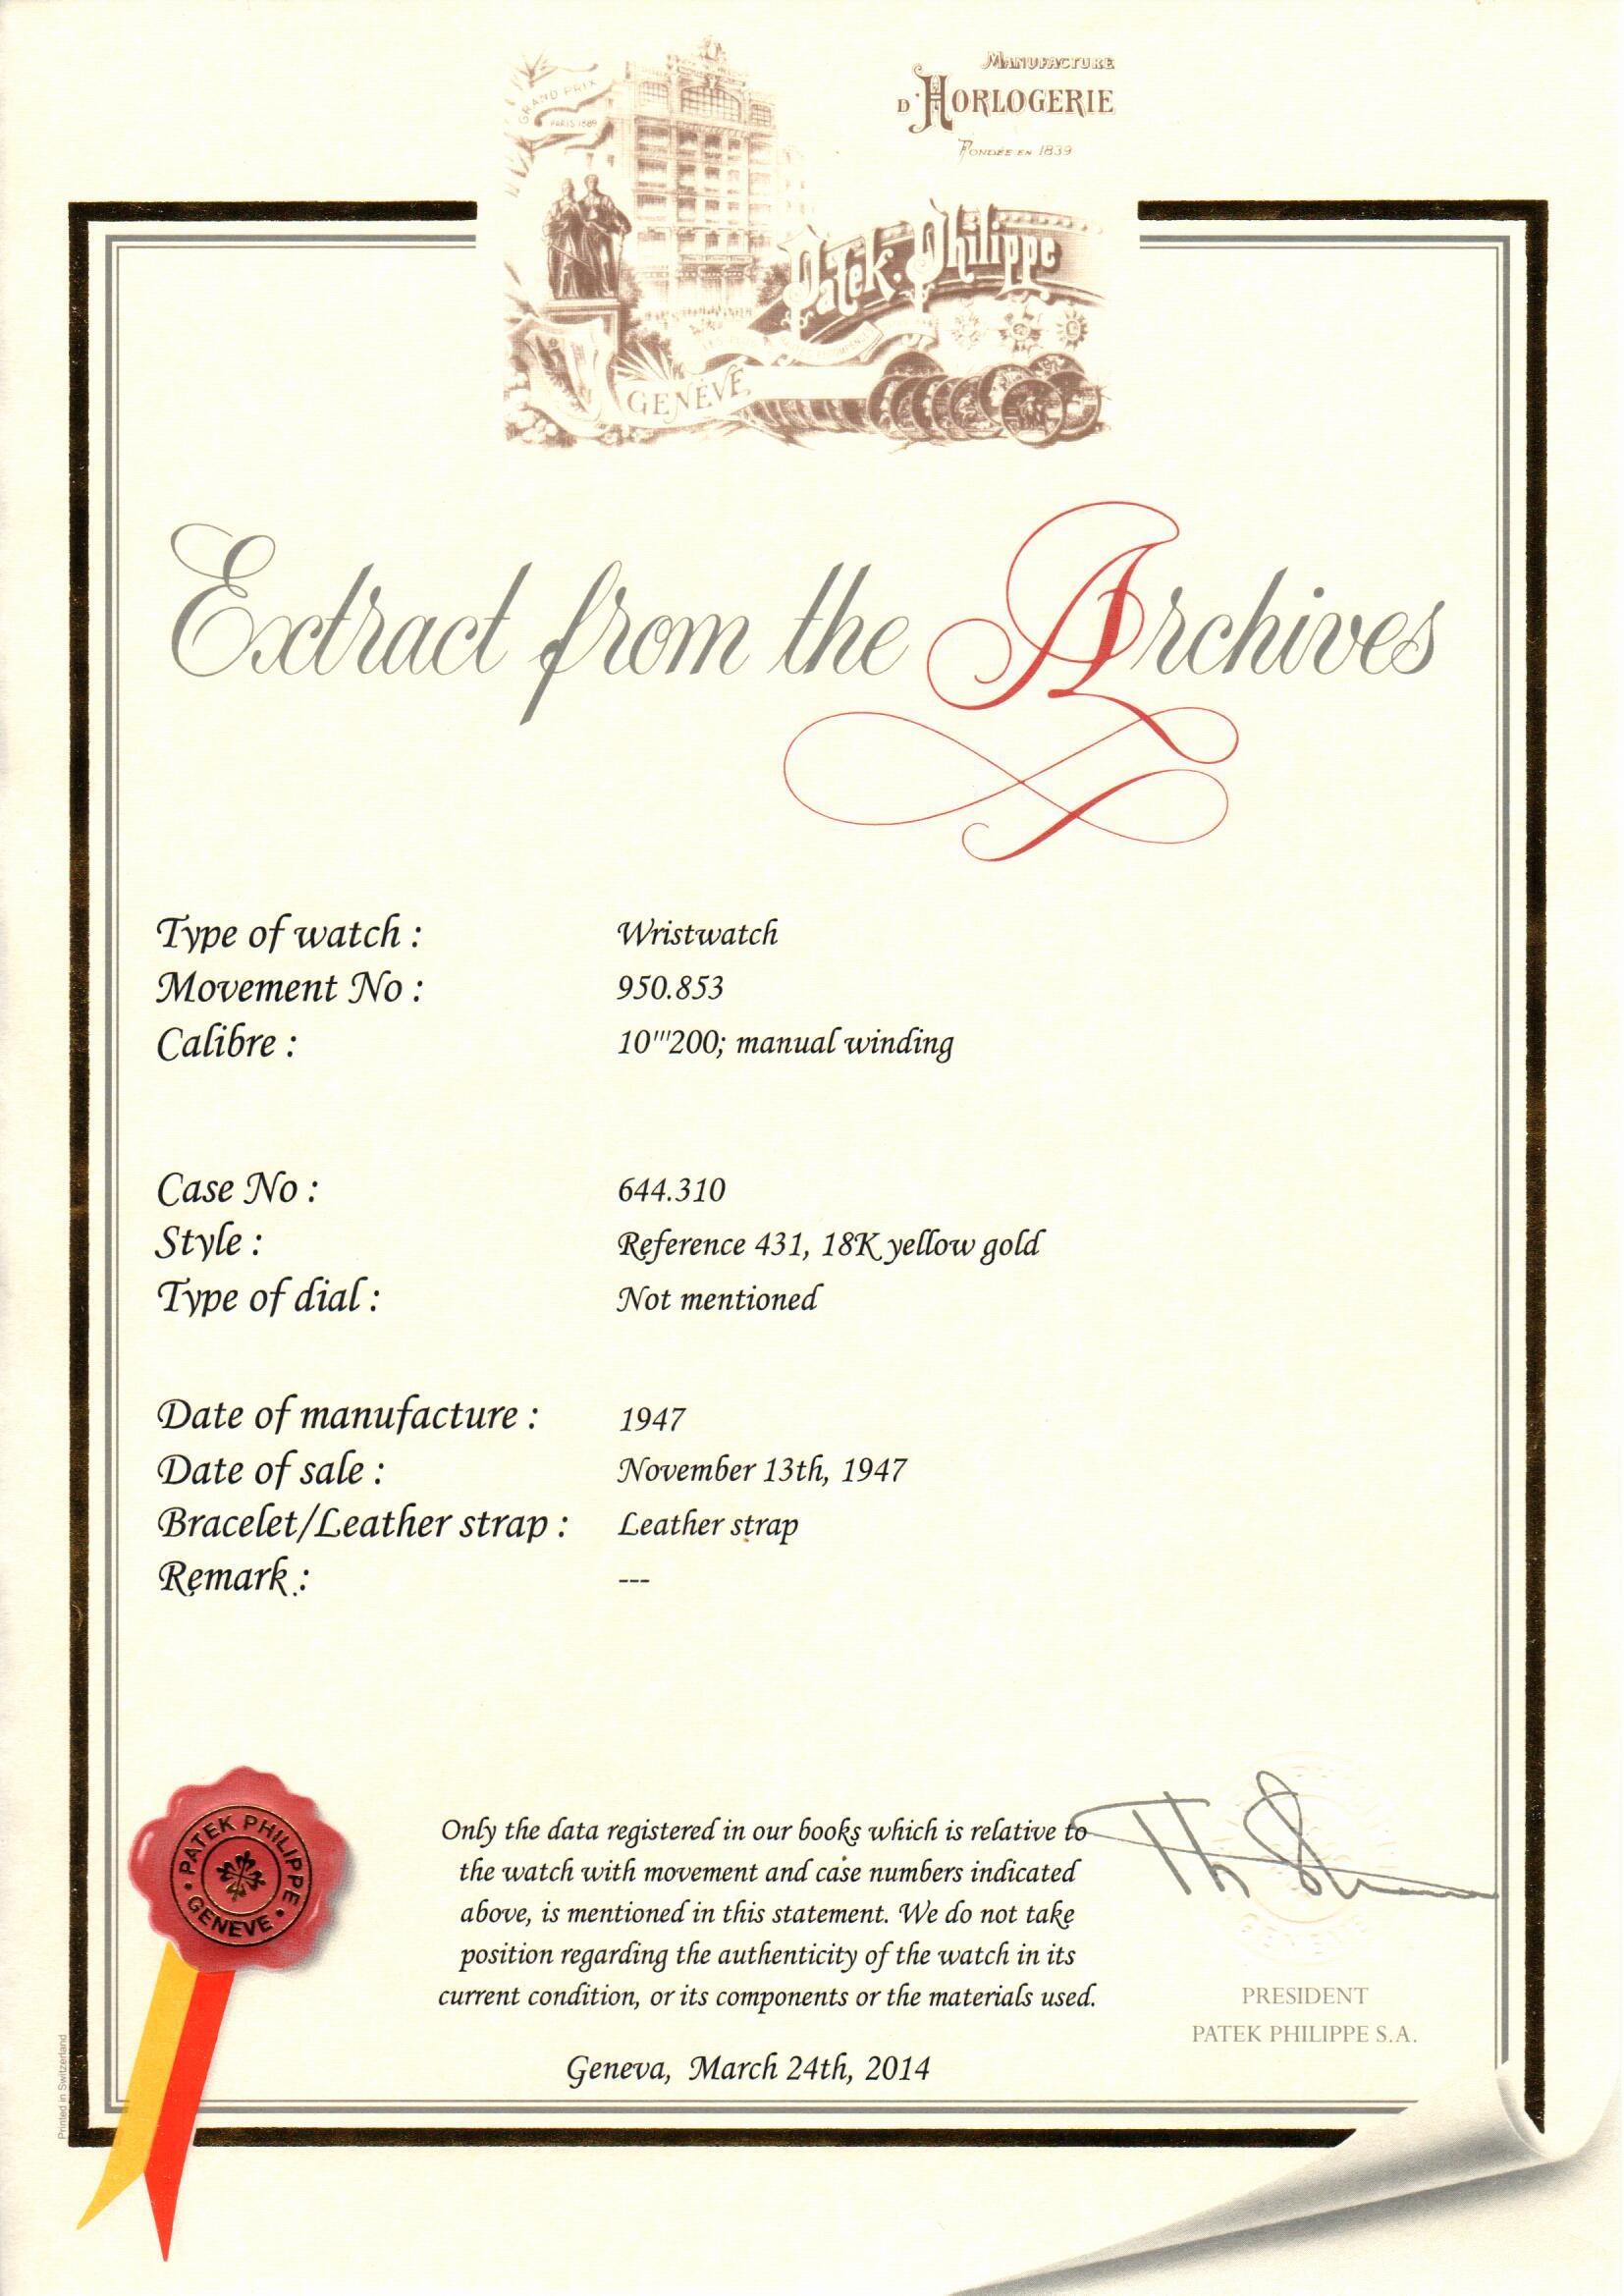 GRAND PRIX
PARIS 1889
MANUFACTURE
D'HORLOGERIE
FONDÉE EN 1839
Patek. Philippe
GENÈVE
Extract from the Archives
Type of watch : Wristwatch
Movement No : 950.853
Calibre : 10'''200; manual winding
Case No : 644.310
Style : Reference 431, 18K yellow gold
Type of dial : Not mentioned
Date of manufacture : 1947
Date of sale : November 13th, 1947
Bracelet/Leather strap : Leather strap
Remark : ---
PATEK PHILIPPE
GENEVE
Only the data registered in our books which is relative to
the watch with movement and case numbers indicated
above, is mentioned in this statement. We do not take
position regarding the authenticity of the watch in its
current condition, or its components or the materials used.
Geneva, March 24th, 2014
PRESIDENT
PATEK PHILIPPE S.A.
Printed in Switzerland